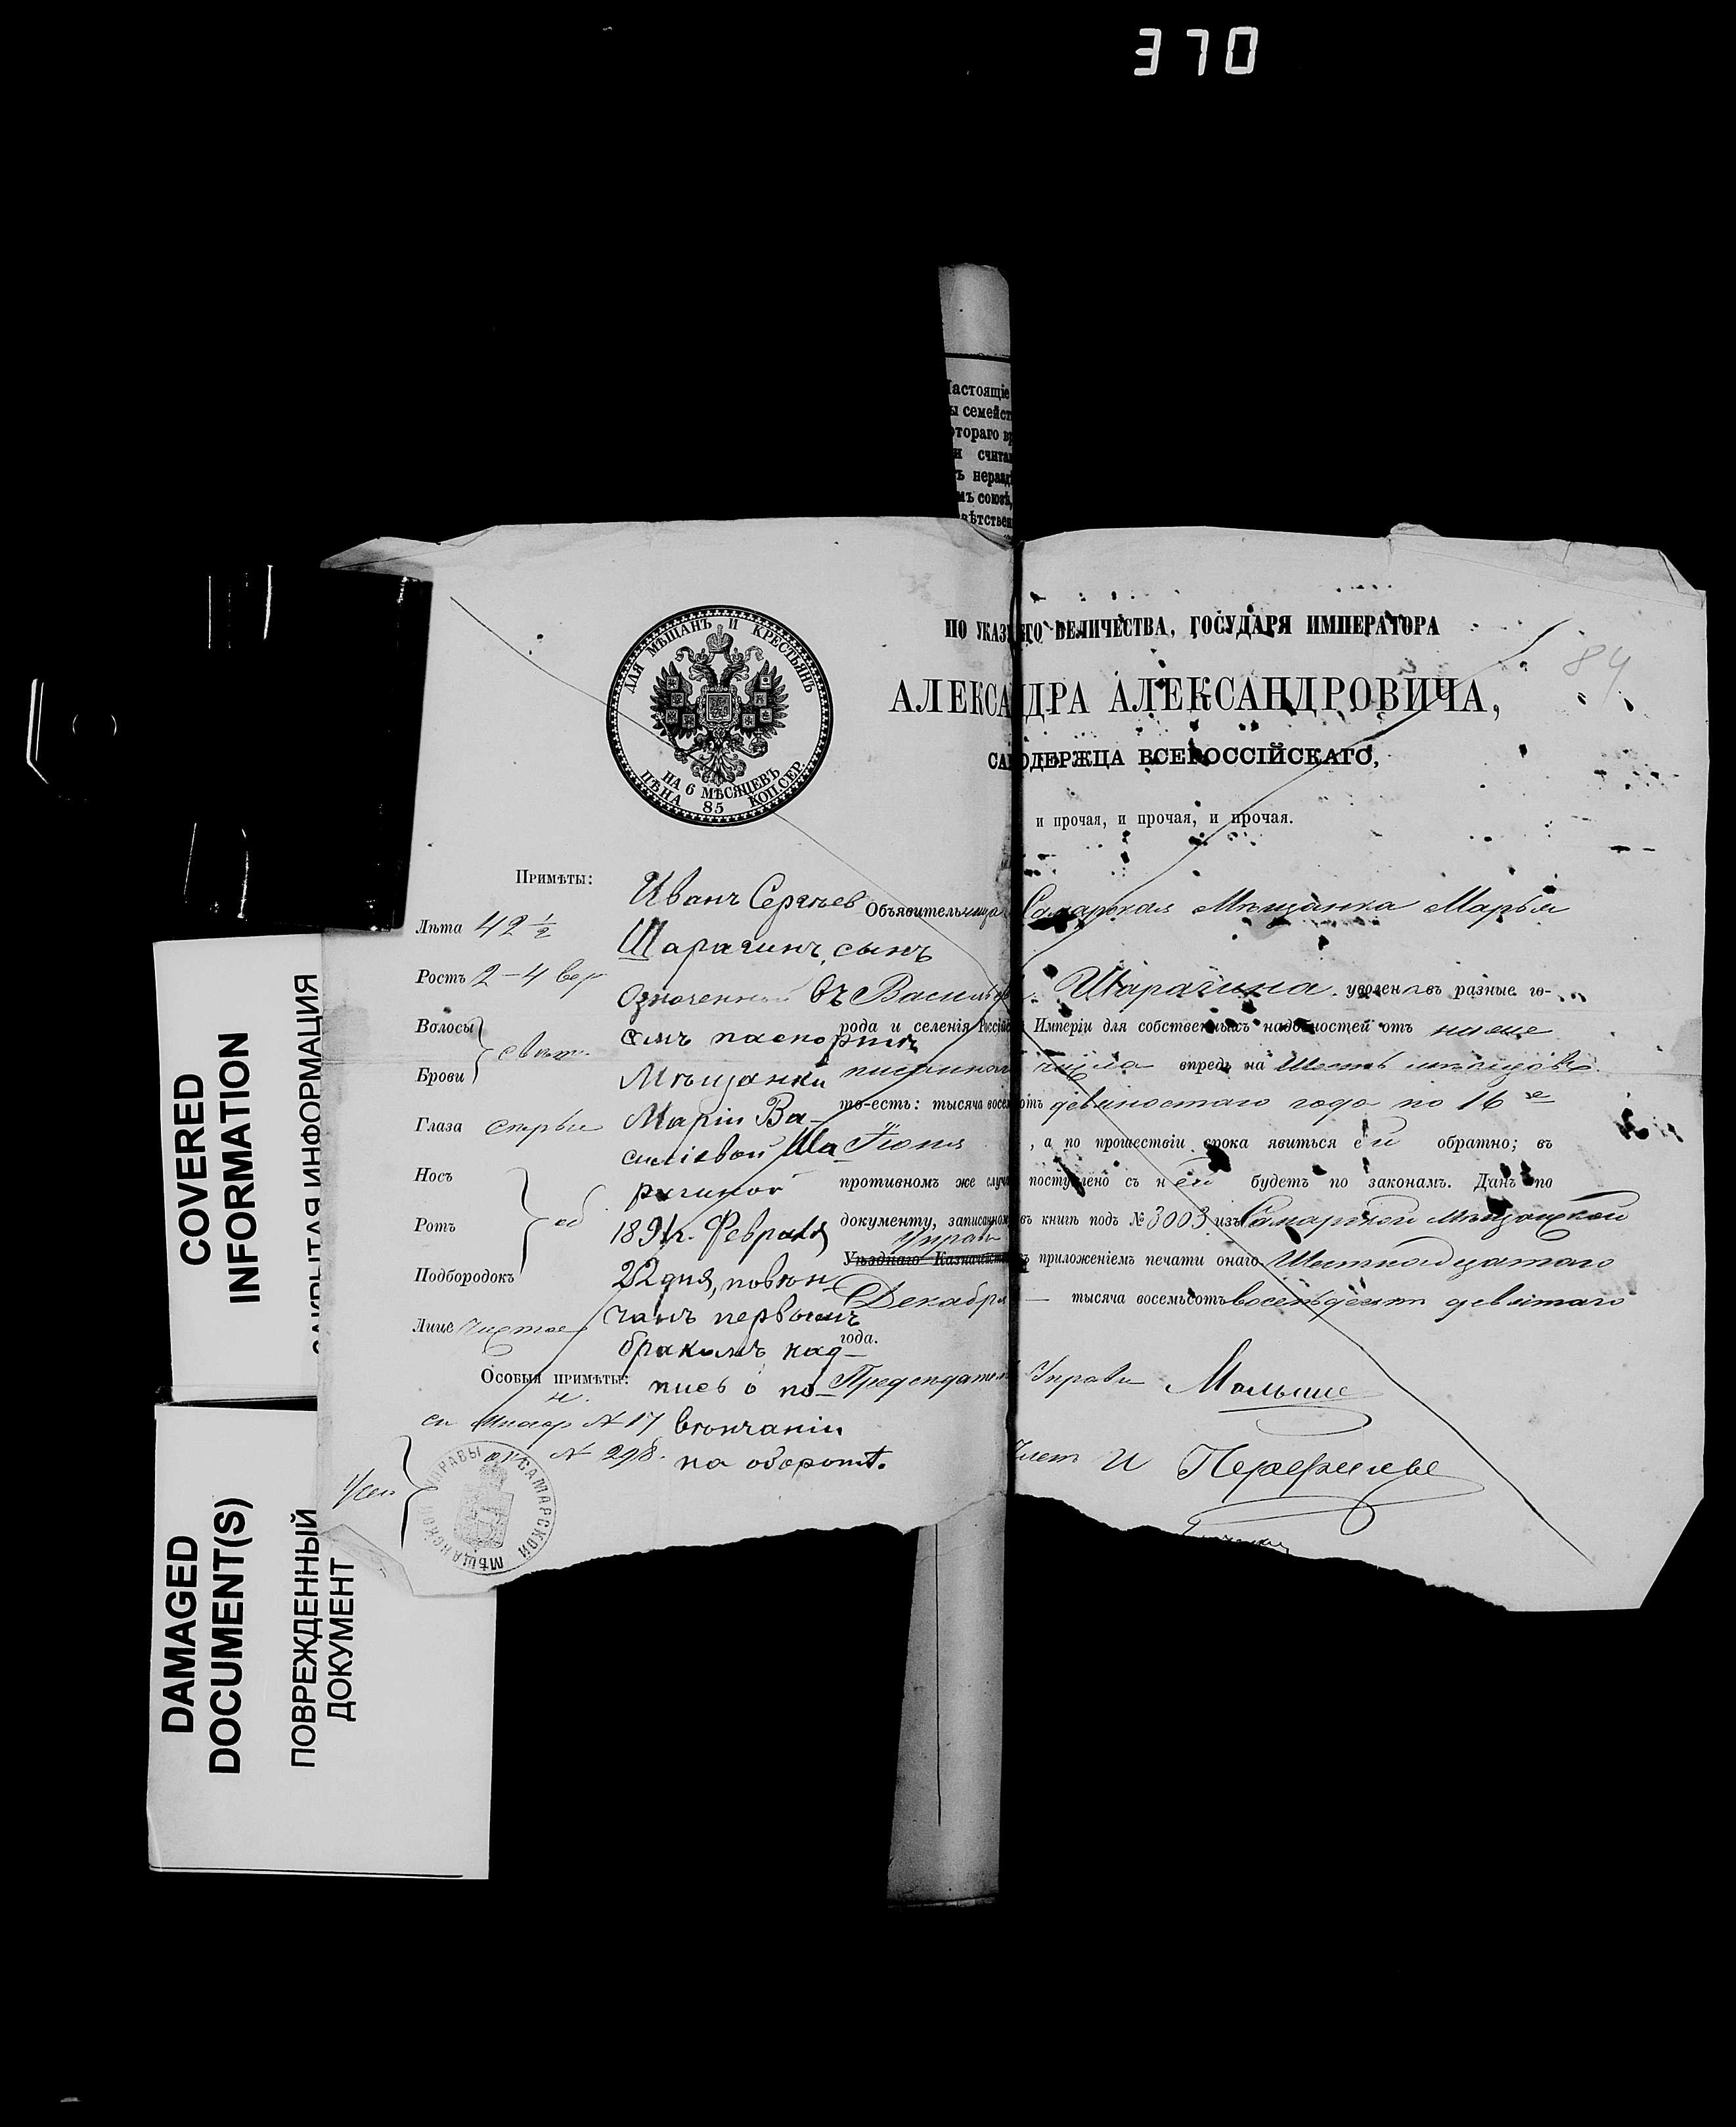 370
Настоящіе
ы семейст
отораго вр
и счита
ъ неразд
мъ союзѣ,
вѣтствен
84
ПО УКАЗ ЕГО ВЕЛИЧЕСТВА, ГОСУДАРЯ ИМПЕРАТОРА
АЛЕКСАНДРА АЛЕКСАНДРОВИЧА,
САМОДЕРЖЦА ВСЕРОССІЙСКАГО,
и прочая, и прочая, и прочая.
ДЛЯ МѢЩАНЪ И КРЕСТЬЯНЪ
НА 6 МѢСЯЦЕВЪ
ЦѢНА 85 КОП.СЕР.
Примѣты:
Лѣта 42 1/2
Ростъ 2-4 вер
Волосы
Брови
свѣт.
Глаза сѣрые
Носъ
Ротъ
Подбородокъ
об
Лице Чистое
Особыя примѣты:
н.
№ 17
№ 298.
САМАРСКОЙ МѢЩАНСКОЙ УПРАВЫ
Иванъ Сергѣев
Шарагинъ, сынъ
Означенной въ
семъ паспортѣ
Мѣщанки
Маріи Ва-
силіевой Ша-
рагиной
1891 г. Февраля
22 дня, повѣн-
чанъ первымъ
бракомъ, над-
пись о по-
вѣнчаніи
на оборотѣ.
Объявительница Самарская Мѣщанка Марья
Васильев. Шарагина уволена въ разные го-
рода и селенія Россійс Имперіи для собственныхъ надобностей отъ ниже
писаннаго числа впредь на Шесть мѣсяцовъ
то-есть: тысяча восемьсотъ девяностаго года по 16 е
Іюня , а по прошествіи срока явиться ей обратно; въ
противномъ же случ поступлено съ ней будетъ по законамъ. Данъ по
документу, записанному въ книгѣ подъ № 3003 изъ Самарской Мѣщанской
Управы
Уѣзднаго Казначейства съ приложеніемъ печати онаго Шестнадцатаго
Декабря — тысяча восемьсотъ восемьдесят девятаго
года.
Предсѣдатель Управы
Член И
COVERED
INFORMATION
ЗАКРЫТАЯ ИНФОРМАЦИЯ
DAMAGED
DOCUMENT(S)
ПОВРЕЖДЕННЫЙ
ДОКУМЕНТ